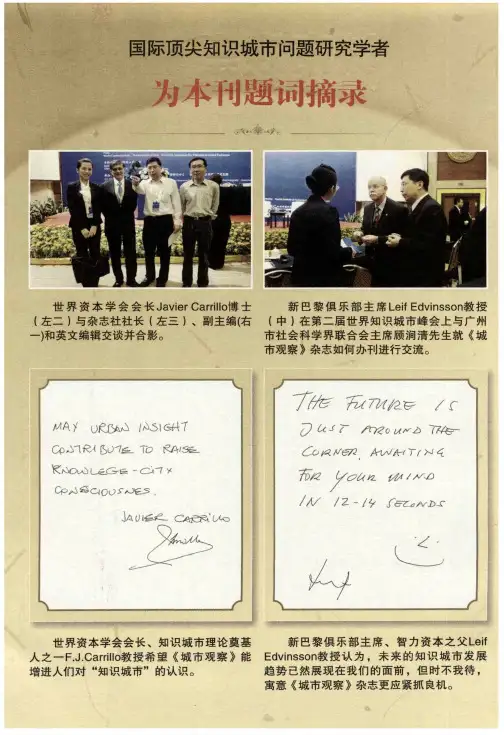 国际顶尖知识城市问题研究学者
为本刊题词摘录
世界资本学会会长Javier Carrillo博士
（左二）与杂志社社长（左三）、副主编(右
一)和英文编辑交谈并合影。
新巴黎俱乐部主席Leif Edvinsson教授
（中）在第二届世界知识城市峰会上与广州
市社会科学界联合会主席顾涧清先生就《城
市观察》杂志如何办刊进行交流。
MAY URBAN INSIGHT
CONTRIBUTE TO RAISE
KNOWLEGE-CITY
CONSCIOUSNES.
JAVIER CARRILLO
THE FUTURE IS
JUST AROUND THE
CORNER, AWAITING
FOR YOUR MIND
IN 12-14 SECONDS
世界资本学会会长、知识城市理论奠基
人之一F.J.Carrillo教授希望《城市观察》能
增进人们对“知识城市”的认识。
新巴黎俱乐部主席、智力资本之父Leif
Edvinsson教授认为，未来的知识城市发展
趋势已然展现在我们的面前，但时不我待，
寓意《城市观察》杂志更应紧抓良机。